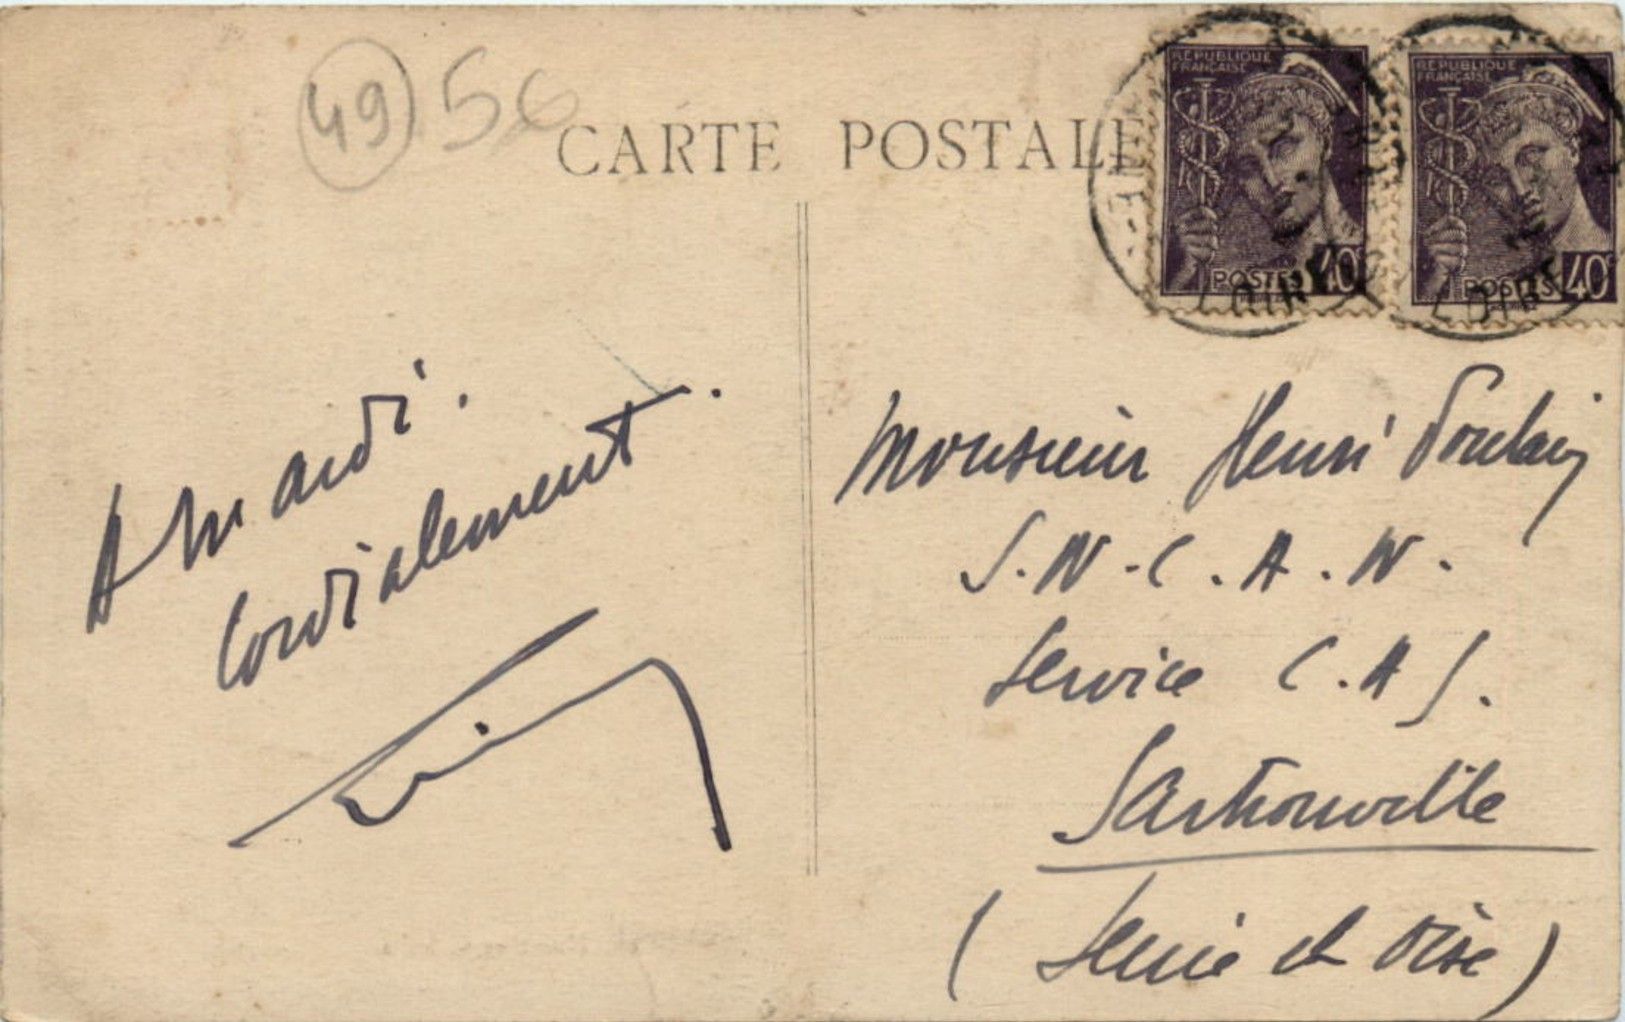 49 56
CARTE POSTALE
REPUBLIQUE
FRANÇAISE
POSTES 40c
REPUBLIQUE
FRANÇAISE
POSTES 40c
LOIRE
LOIRE
A mardi.
Cordialement.
Monsieur Henri Poulain
S.N.C.A.N.
Service C.A.S.
Sartrouville
(Seine et Oise)